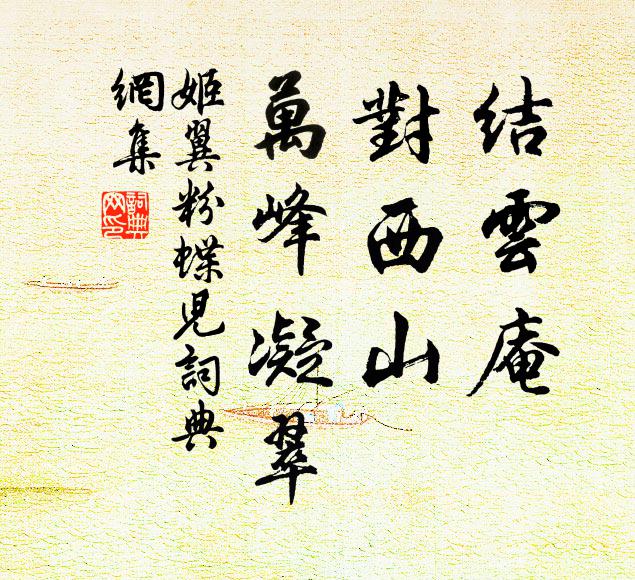 結雲庵
對西山
萬峰凝翠
姬翼粉蝶兒詞典
網集
詞典网印